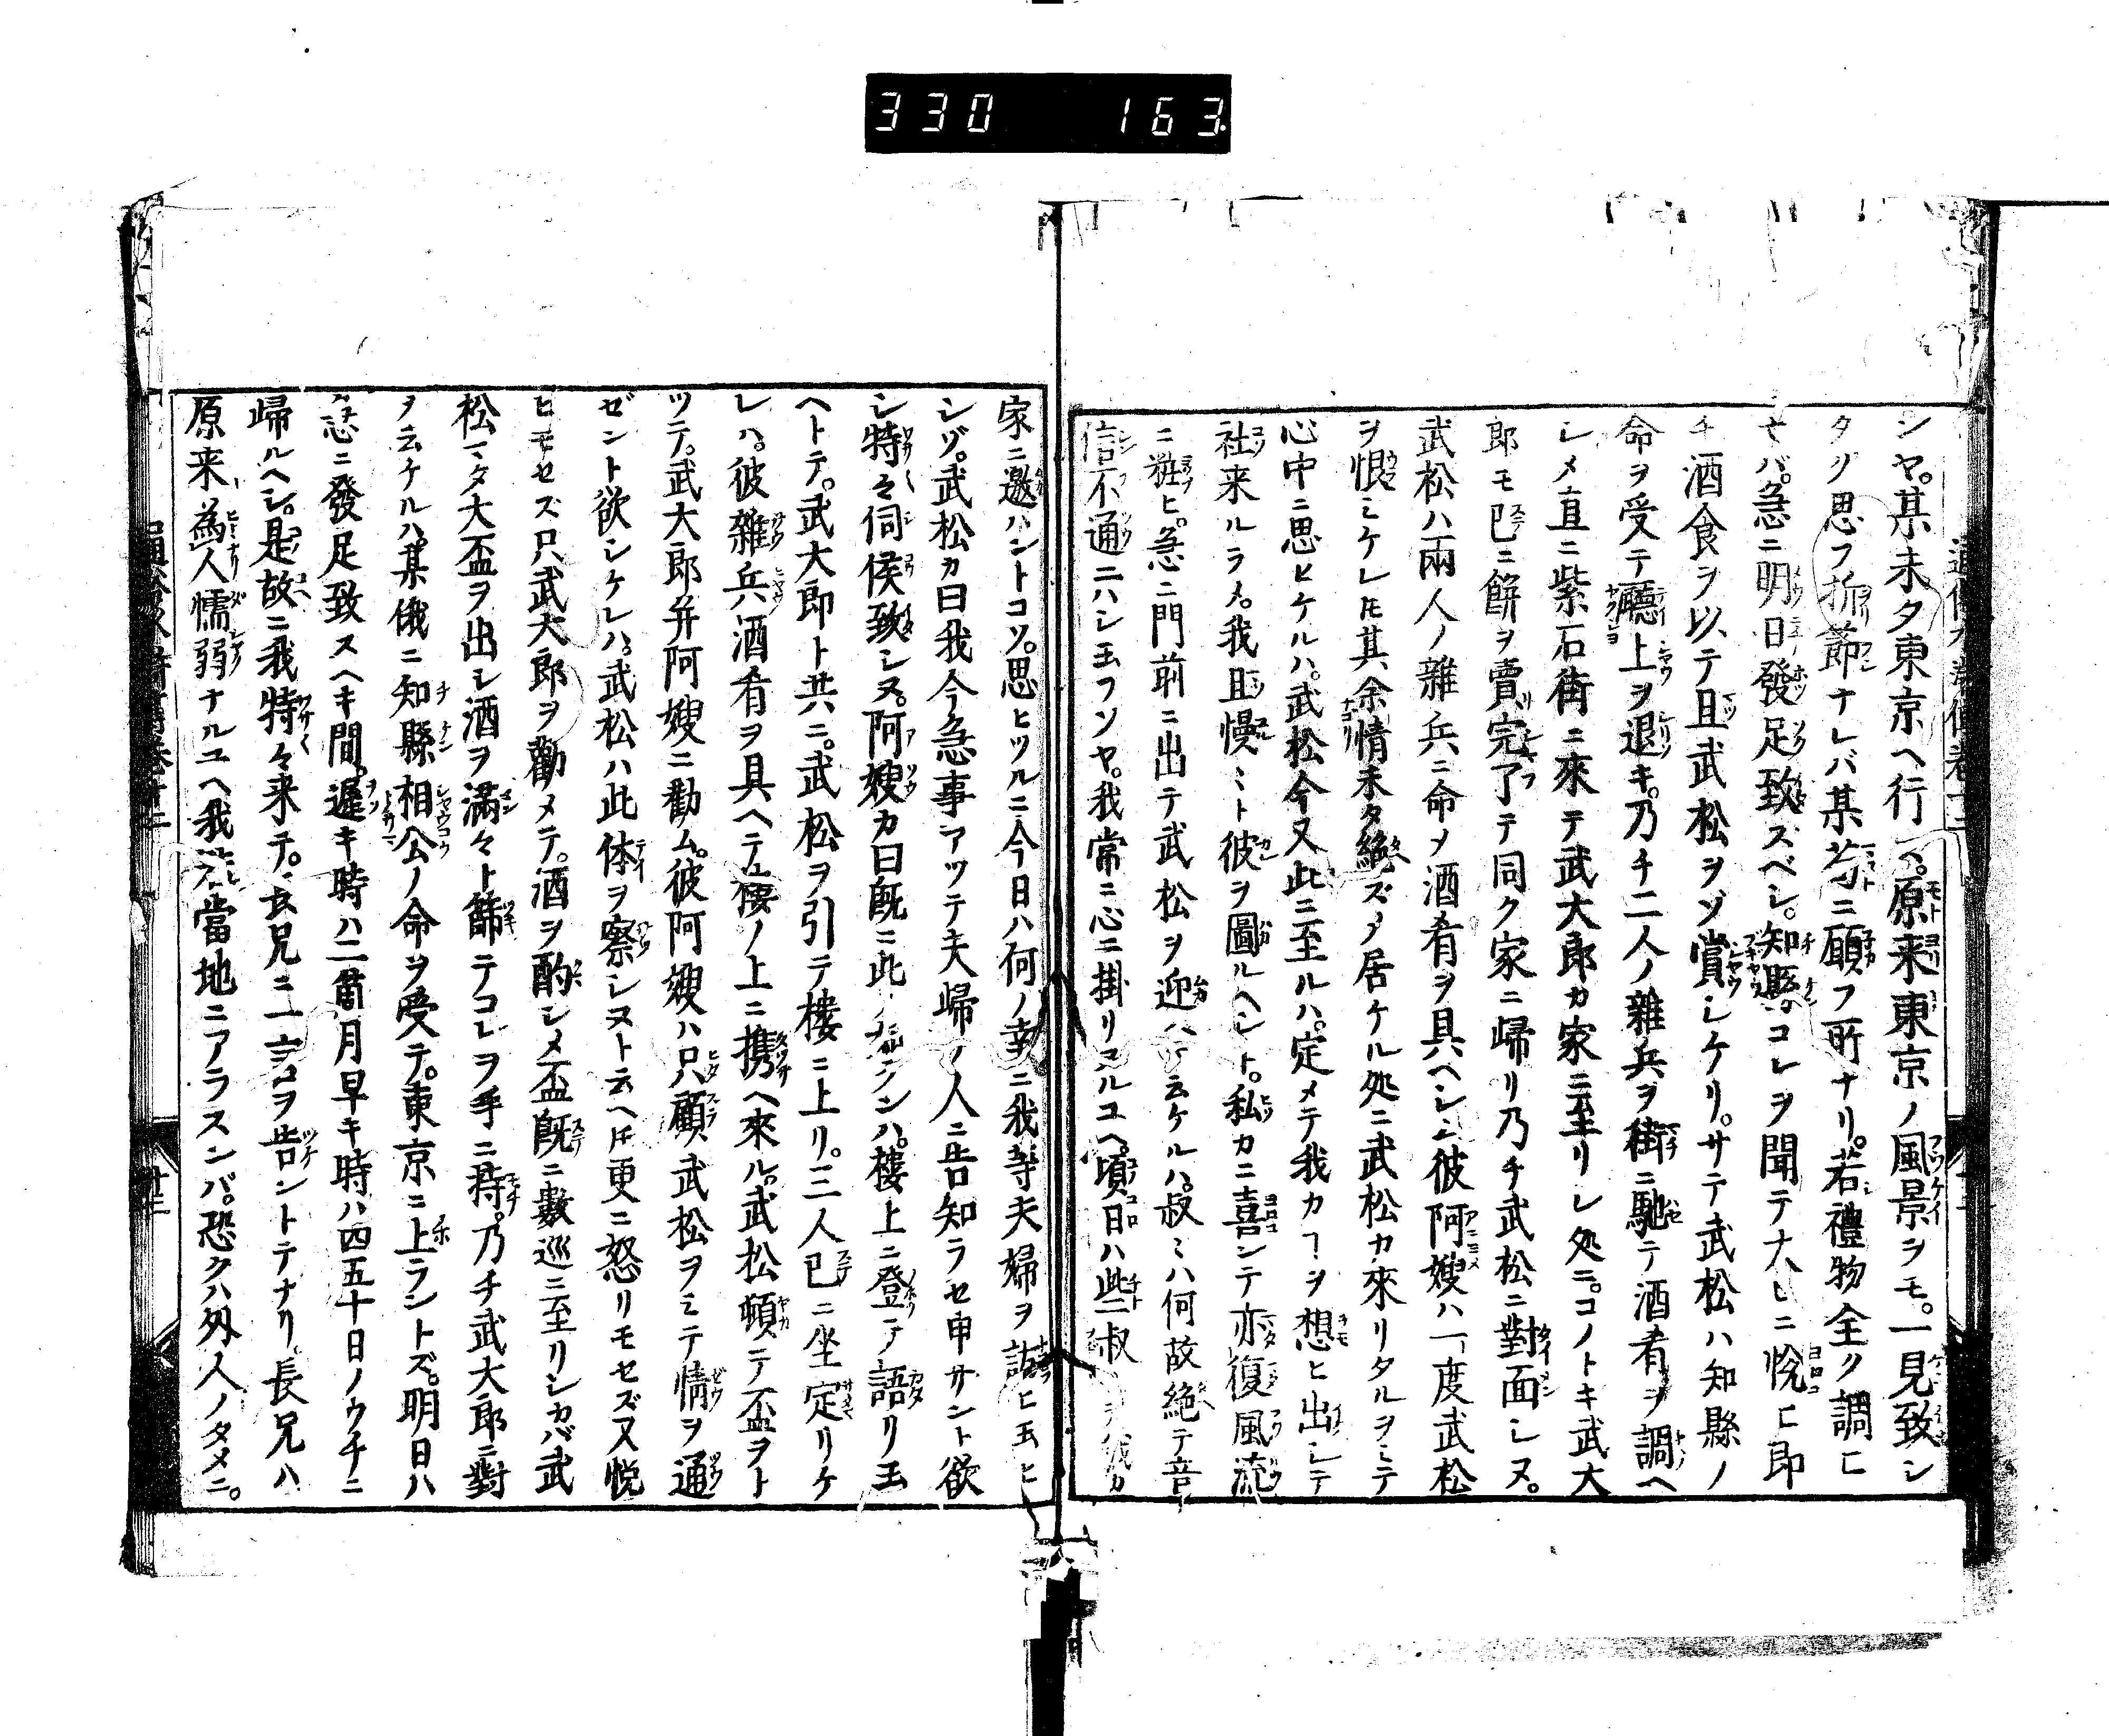 330 163
シヤ。某未タ東京ヘ行ズ。原来東京ノ風景ヲモ。一見致シ
タク思フ折節ナレバ某茍ニ願フ所ナリ。若禮物全ク調ヒ
ナバ。急ニ明日發足致スベシ。知縣コレヲ聞テ大ヒニ悅ヒ即
チ酒食ヲ以テ且武松ヲゾ賞シケリ。サテ武松ハ知縣ノ
命ヲ受テ廳上ヲ退キ。乃チ二人ノ雜兵ヲ街ニ馳テ酒肴ヲ調ヘ
シメ直ニ紫石街ニ來テ武大郎カ家ニ至リシ処ニ。コノトキ武大
郎モ已ニ餅ヲ賣完了テ同ク家ニ帰リ乃チ武松ニ對面シヌ。
武松ハ兩人ノ雜兵ニ命メ酒肴ヲ具ヘシム彼阿嫂ハ一度武松
ヲ恨ミケレ𪜈其余情未タ絶ズメ居ケル処ニ武松カ來リタルヲミテ
心中ニ思ヒケルハ。武松今又此ニ至ルハ。定メテ我カヿヲ想ヒ出シテ
社来ルラメ。我且慢ミト彼ヲ圖ルヘシト。私カニ喜ンテ亦復風流
ニ粧ヒ。急ニ門前ニ出テ武松ヲ迎ハテ云ケルハ。叔ミハ何故絶テ音
信不通ニハシ玉フソヤ。我常ニ心ニ掛リヌルユヘ。頃日ハ些叔
家ニ邀ハントコソ。思ヒツルニ今日ハ何ノ幸ニ我等夫婦ヲ訪ヒ玉ヒ
シゾ。武松カ曰我今急事アツテ夫帰ノ人ニ告知ラセ申サント欲
シ特々伺侯致シヌ。阿嫂カ曰既ニ此ノ如クンハ。樓上ニ登テ語リ玉
ヘトテ。武大郎ト共ニ。武松ヲ引テ樓ニ上リ。三人已ニ坐定リケ
レハ。彼雜兵酒肴ヲ具ヘテ樓ノ上ニ携ヘ來ル。武松頓ニテ盃ヲト
ツテ。武大郎并阿嫂ニ勸ム。彼阿嫂ハ只顧武松ヲミテ情ヲ通
ゼント欲シケレハ。武松ハ此体ヲ察シヌト云ヘ𪜈更ニ怒リモセズ又悅
ヒモセズ只武大郎ヲ勸メテ。酒ヲ酌シメ盃既ニ數巡ニ至リシカバ武
松マタ大盃ヲ出シ酒ヲ滿々ト篩テコレヲ手ニ持。乃チ武大郎ニ對
ヲ云ケルハ。某俄ニ知縣相公ノ命ヲ受テ。東京ニ上ラントズ。明日ハ
急ニ發足致スヘキ間。遲キ時ハ二箇月早キ時ハ四五十日ノウチニ
歸ルヘシ。是故ニ我特々来テ。長兄ニ一言ヲ告ントテナリ長兄ハ
原来為人懦弱ナルユヘ我當地ニアラスンバ。恐クハ外人ノタメニ。
十三